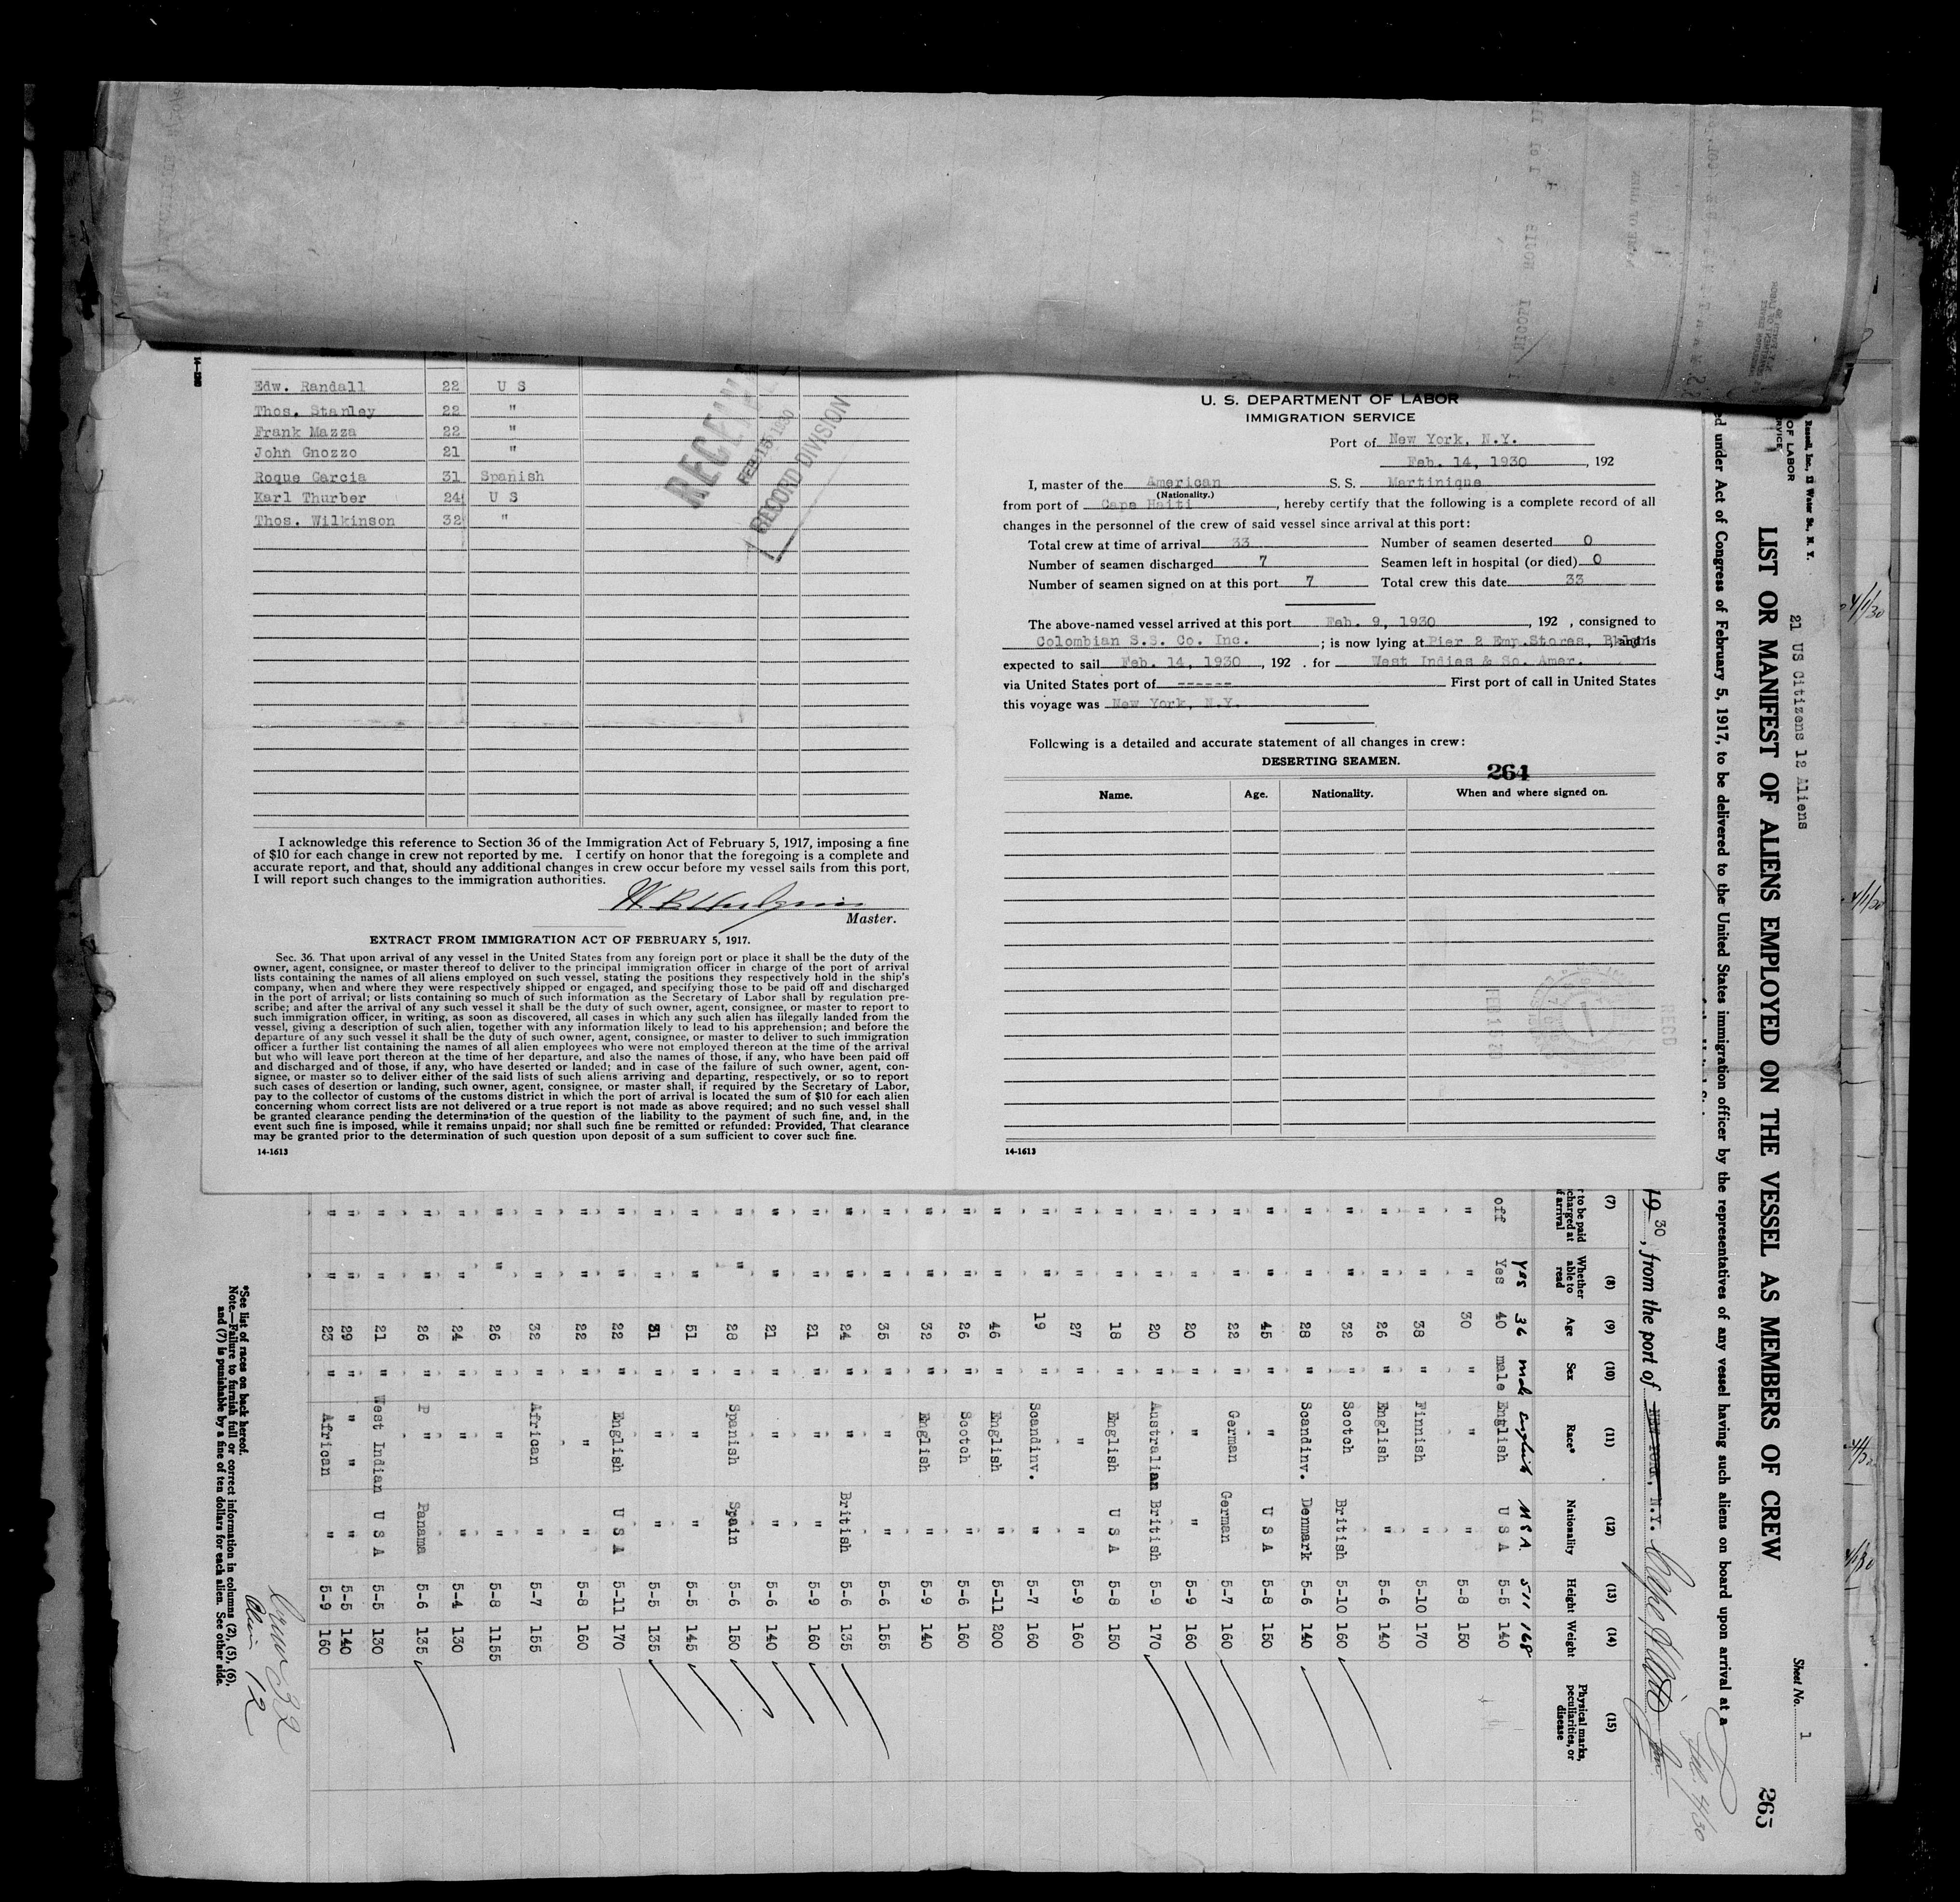 14-1613
Edw. Randall 22 U S
Thos. Stanley 22 "
Frank Mazza 22 "
John Gnozzo 21 "
Roque Garcia 31 Spanish
Karl Thurber 24 U S
Thos. Wilkinson 32 "
FEB 15 1930
RECORD DIVISION
I acknowledge this reference to Section 36 of the Immigration Act of February 5, 1917, imposing a fine
of $10 for each change in crew not reported by me. I certify on honor that the foregoing is a complete and
accurate report, and that, should any additional changes in crew occur before my vessel sails from this port,
I will report such changes to the immigration authorities.
Master.
EXTRACT FROM IMMIGRATION ACT OF FEBRUARY 5, 1917.
Sec. 36. That upon arrival of any vessel in the United States from any foreign port or place it shall be the duty of the
owner, agent, consignee, or master thereof to deliver to the principal immigration officer in charge of the port of arrival
lists containing the names of all aliens employed on such vessel, stating the positions they respectively hold in the ship's
company, when and where they were respectively shipped or engaged, and specifying those to be paid off and discharged
in the port of arrival; or lists containing so much of such information as the Secretary of Labor shall by regulation pre-
scribe; and after the arrival of any such vessel it shall be the duty of such owner, agent, consignee, or master to report to
such immigration officer, in writing, as soon as discovered, all cases in which any such alien has illegally landed from the
vessel, giving a description of such alien, together with any information likely to lead to his apprehension; and before the
departure of any such vessel it shall be the duty of such owner, agent, consignee, or master to deliver to such immigration
officer a further list containing the names of all alien employees who were not employed thereon at the time of the arrival
but who will leave port thereon at the time of her departure, and also the names of those, if any, who have been paid off
and discharged and of those, if any, who have deserted or landed; and in case of the failure of such owner, agent, con-
signee, or master so to deliver either of the said lists of such aliens arriving and departing, respectively, or so to report
such cases of desertion or landing, such owner, agent, consignee, or master shall, if required by the Secretary of Labor,
pay to the collector of customs of the customs district in which the port of arrival is located the sum of $10 for each alien
concerning whom correct lists are not delivered or a true report is not made as above required; and no such vessel shall
be granted clearance pending the determination of the question of the liability to the payment of such fine, and, in the
event such fine is imposed, while it remains unpaid; nor shall such fine be remitted or refunded: Provided, That clearance
may be granted prior to the determination of such question upon deposit of a sum sufficient to cover such fine.
14-1613
U. S. DEPARTMENT OF LABOR
IMMIGRATION SERVICE
Port of New York, N.Y.
Feb. 14, 1930, 192
I, master of the American S. S. Martinique
(Nationality.)
from port of Cape Haiti, hereby certify that the following is a complete record of all
changes in the personnel of the crew of said vessel since arrival at this port:
Total crew at time of arrival 33 Number of seamen deserted 0
Number of seamen discharged 7 Seamen left in hospital (or died) 0
Number of seamen signed on at this port 7 Total crew this date 33
The above-named vessel arrived at this port Feb. 9, 1930, 192 , consigned to
Colombian S.S. Co. Inc. ; is now lying at Pier 2 Emp.Stores, Bklyn, and is
expected to sail Feb. 14, 1930, 192 . for West Indies & So. Amer.
via United States port of ------ First port of call in United States
this voyage was New York, N.Y.
Following is a detailed and accurate statement of all changes in crew:
DESERTING SEAMEN.
264
Name. Age. Nationality. When and where signed on.
14-1613
21 US Citizens 12 Aliens
Sheet No. 1
LIST OR MANIFEST OF ALIENS EMPLOYED ON THE VESSEL AS MEMBERS OF CREW
265
ed under Act of Congress of February 5, 1917, to be delivered to the United States immigration officer by the representatives of any vessel having such aliens on board upon arrival at a
19 30, from the port of NEW YORK, N.Y. Cape Haiti
(7) (8) (9) (10) (11) (12) (13) (14) (15)
Whether able to read Age Sex Race* Nationality Height Weight Physical marks, peculiarities, or disease
Yes 36 male English U S A. 511 168
off Yes 40 male English U S A 5-5 140
" " 30 " " " 5-8 150
" " 38 " Finnish " 5-10 170
" " 26 " English " 5-6 140
" " 32 " Scotch British 5-10 160
" " 28 " Scandinv. Denmark 5-6 140
" " 45 " " U S A 5-8 150
" " 22 " German German 5-7 160
" " 20 " " " 5-9 160
" " 20 " Australian British 5-9 170
" " 18 " English U S A 5-8 150
" " 27 " " " 5-9 160
" " 19 " Scandinv. " 5-7 160
" " 46 " English " 5-11 200
" " 26 " Scotch " 5-6 160
" " 32 " English " 5-9 140
" " 35 " " " 5-6 155
" " 24 " " British 5-6 135
" " 21 " " " 5-9 160
" " 21 " " " 5-6 140
" " 28 " Spanish Spain 5-6 150
" " 51 " " " 5-5 145
" " 31 " " " 5-5 135
" " 22 " English U S A 5-11 170
" " 22 " " " 5-8 160
" " 32 " African " 5-7 155
" " 26 " " " 5-8 1155
" " 24 " " " 5-4 130
" " 26 " P " Panama 5-6 135
" " 21 " West Indian U S A 5-5 130
" " 29 " " " 5-5 140
" " 23 " African " 5-9 160
*See list of races on back hereof.
Note.—Failure to furnish full or correct information in columns (2), (5), (6),
and (7) is punishable by a fine of ten dollars for each alien. See other side.
Crew 32
Alien 12